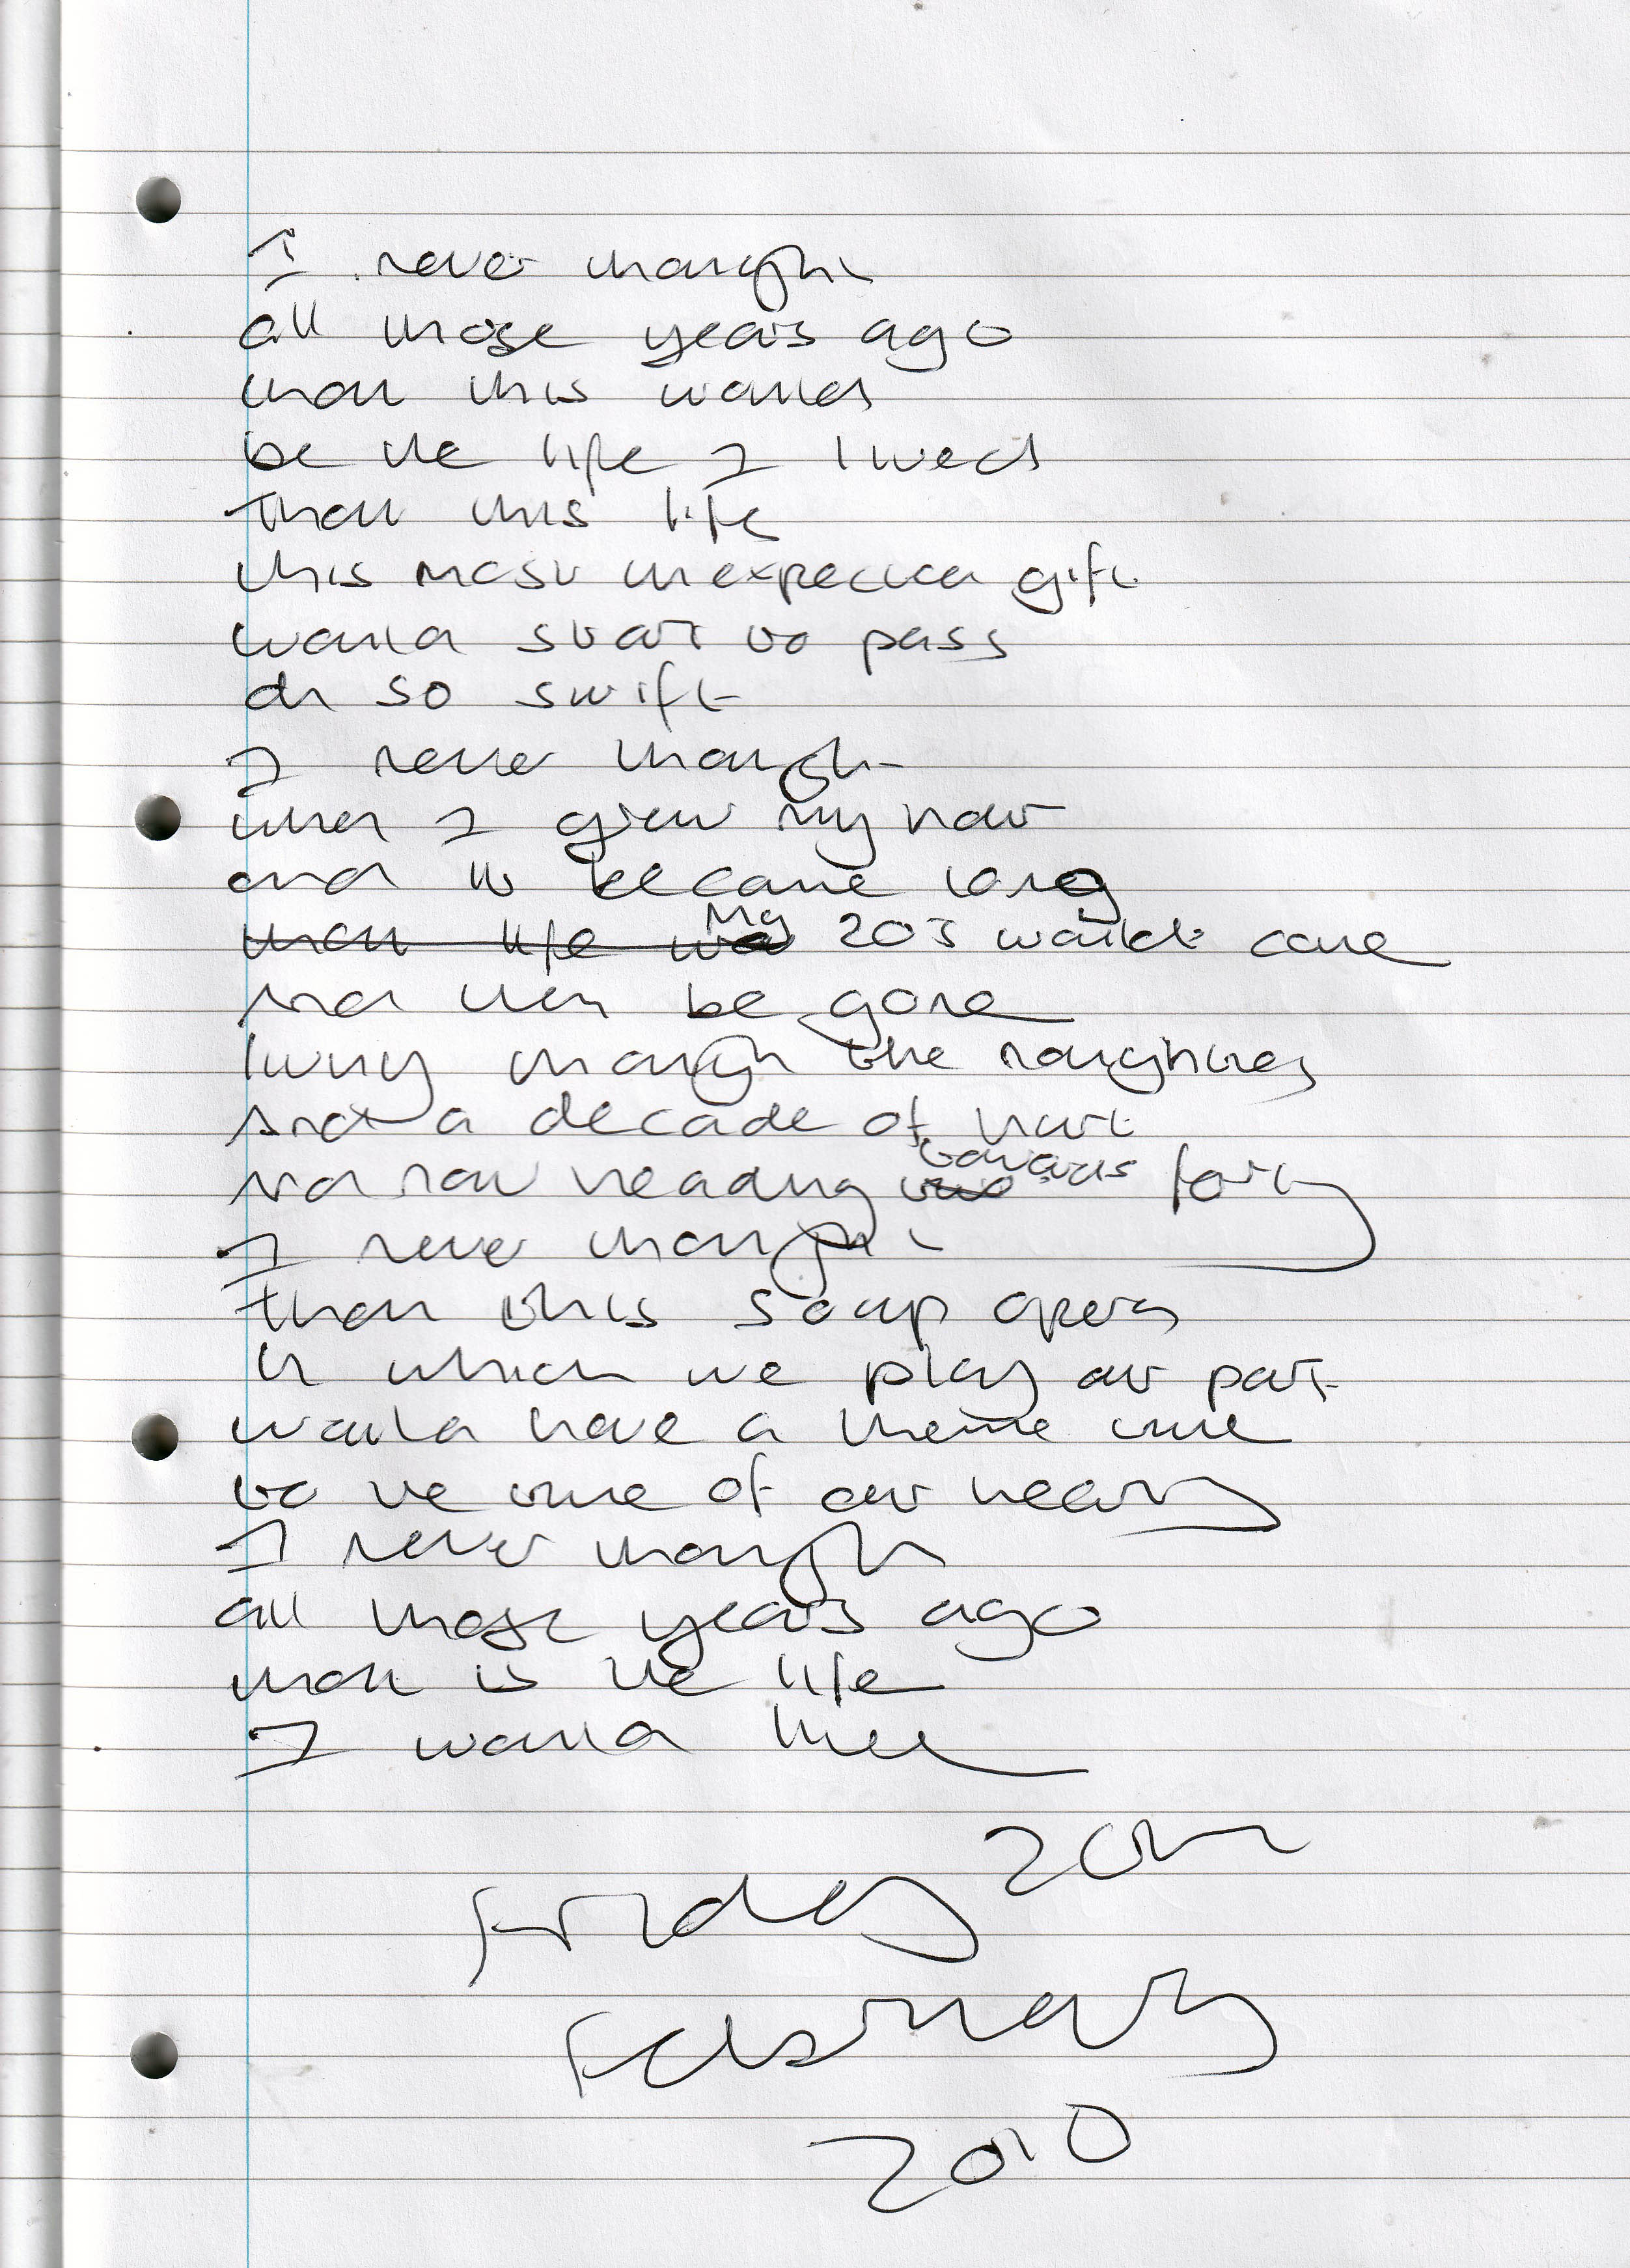 I never thought
all those years ago
that this would
be the life I lived
that this life
this most unexpected gift
would start to pass
oh so swift
I never thought
when I grew my hair
and it became long
that life wo My 20s would come
and then be gone
living through the noughties
and a decade of hurt
and now heading towards forty
I never thought
that this soap opera
in which we play our part
would have a theme tune
to the tune of our hearts
I never thought
all those years ago
that is the life
I would live
Friday 20th
February
2010